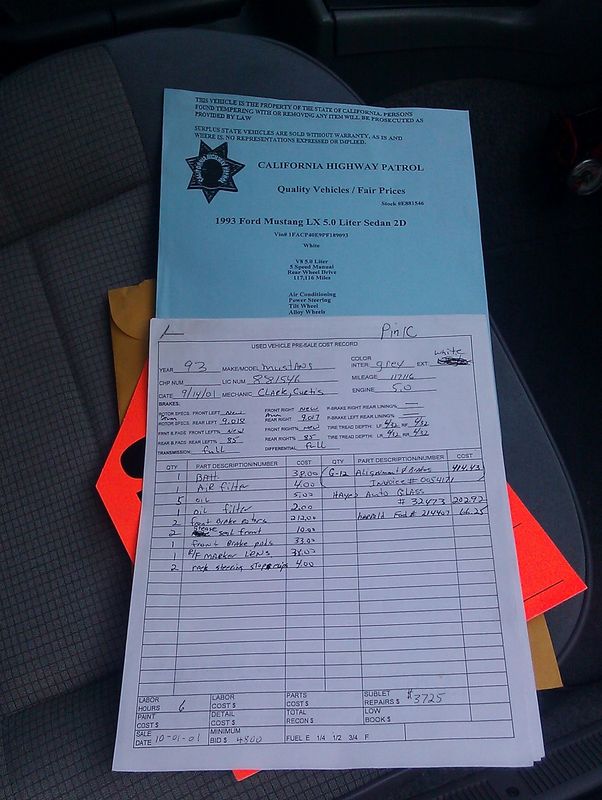 THIS VEHICLE IS THE PROPERTY OF THE STATE OF CALIFORNIA, PERSONS
FOUND TEMPERING WITH OR REMOVING ANY ITEM WILL BE PROSECUTED AS
PROVIDED BY LAW
SURPLUS STATE VEHICLES ARE SOLD WITHOUT WARRANTY, AS IS AND
WHERE IS, NO REPRESENTATIONS EXPRESSED OR IMPLIED.
CALIFORNIA HIGHWAY PATROL
Quality Vehicles / Fair Prices
Stock #E881546
1993 Ford Mustang LX 5.0 Liter Sedan 2D
Vin# 1FACP40E9PF189093
White
V8 5.0 Liter
5 Speed Manual
Rear Wheel Drive
117,116 Miles
Air Conditioning
Power Steering
Tilt Wheel
Alloy Wheels
USED VEHICLE PRE-SALE COST RECORD
YEAR 93 MAKE/MODEL Mustang COLOR INTER. grey EXT. white
CHP NUM LIC NUM 881546 MILEAGE 117116
DATE 9/14/01 MECHANIC Clark, Curtis ENGINE 5.0
BRAKES:
ROTOR SPECS. FRONT LEFT New FRONT RIGHT new P-BRAKE RIGHT REAR LINING
ROTOR SPECS REAR LEFT 9.018 REAR RIGHT 9.017 P-BRAKE LEFT REAR LINING
FRNT B.PADS FRONT LEFT% New FRONT RIGHT% new TIRE TREAD DEPTH: LF 4/32 RF 4/32
REAR B.PADS REAR LEFT% 85 REAR RIGHT% 85 TIRE TREAD DEPTH: LR 4/32 RR 4/32
TRANSMISSION: full DIFFERENTIAL full
QTY PART DESCRIPTION/NUMBER COST QTY PART DESCRIPTION/NUMBER COST
1 BATT. 38.00 G-12 Alignment & Brakes 414.43
1 AIR filter 4.00 Invoice # 0054171
5 oil 5.00 Hayes Auto Glass
1 oil filter 2.00 # 32473 202.92
2 front Brake rotors 212.00 Harrold Ford # 214407 66.25
2 grease seal front 10.00
1 front Brake pads 33.00
1 R/F MARKER LENS 38.00
2 rack steering stop cups 4.00
LABOR HOURS 6 LABOR COST $ PARTS COST $ SUBLET REPAIRS $ 3725
PAINT COST $ DETAIL COST $ TOTAL RECON $ LOW BOOK $
SALE DATE 10-01-01 MINIMUM BID $ 4800 FUEL E 1/4 1/2 3/4 F